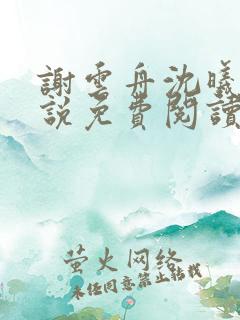 謝雲舟沈曦
說免費閱讀
萤火网络
未经同意禁止转载